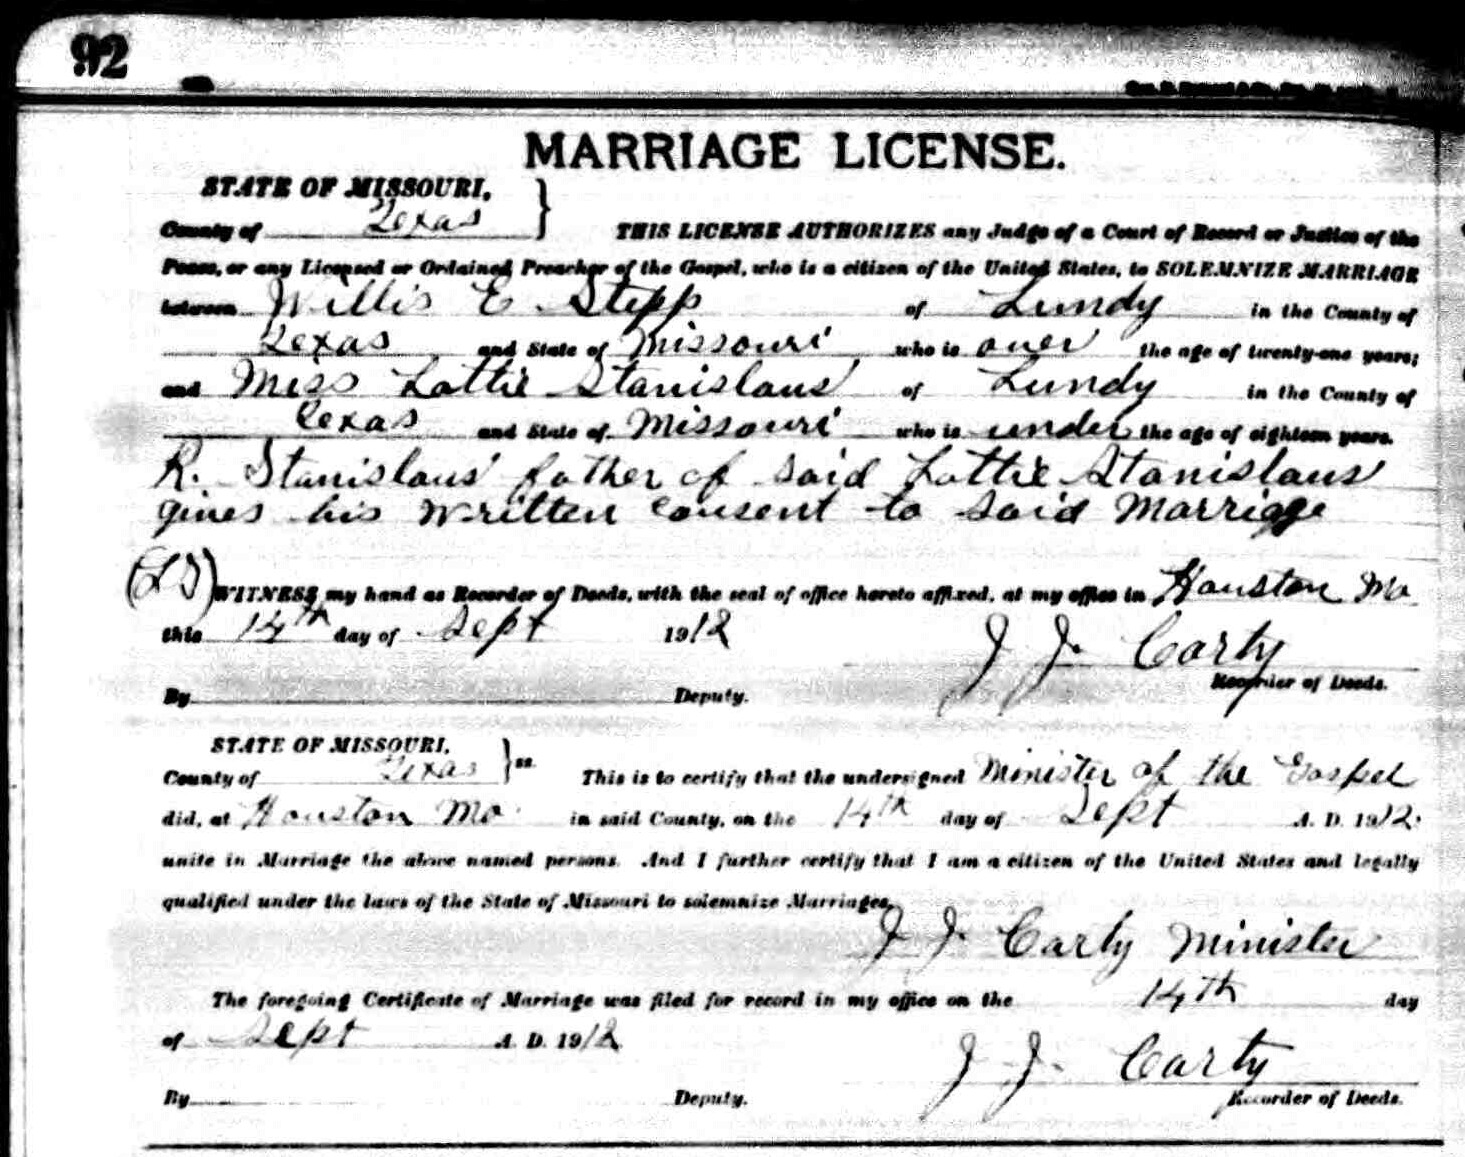 92
MARRIAGE LICENSE.
STATE OF MISSOURI,
County of Texas } THIS LICENSE AUTHORIZES any Judge of a Court of Record or Justice of the
Peace, or any Licensed or Ordained Preacher of the Gospel, who is a citizen of the United States, to SOLEMNIZE MARRIAGE
between Willis E. Stepp of Lundy in the County of
Texas and State of Missouri who is over the age of twenty-one years;
and Miss Lottie Stanislaus of Lundy in the County of
Texas and State of Missouri who is under the age of eighteen years.
R. Stanislaus father of said Lottie Stanislaus
gives his written consent to said Marriage
(LS) WITNESS my hand as Recorder of Deeds, with the seal of office hereto affixed, at my office in Houston Mo
this 14th day of Sept 1912 J J. Carty
Recorder of Deeds.
By Deputy.
STATE OF MISSOURI,
County of Texas } ss. This is to certify that the undersigned Minister of the Gospel
did, at Houston Mo. in said County, on the 14th day of Sept A. D. 1912.
unite in Marriage the above named persons. And I further certify that I am a citizen of the United States and legally
qualified under the laws of the State of Missouri to solemnize Marriages.
J J. Carty Minister
The foregoing Certificate of Marriage was filed for record in my office on the 14th day
of Sept A. D. 1912 J J. Carty
By Deputy. Recorder of Deeds.